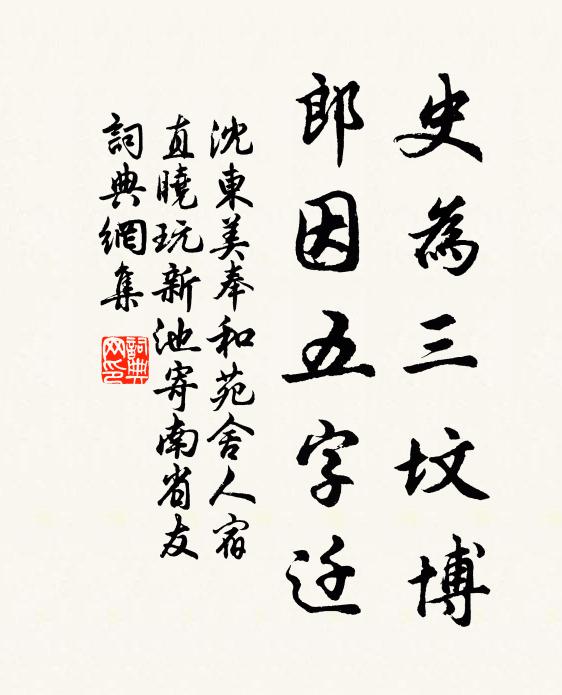 史為三坟博
郎因五字迁
沈東美奉和苑舍人宿
直曉玩新池寄南省友
詞典網集
詞典网印